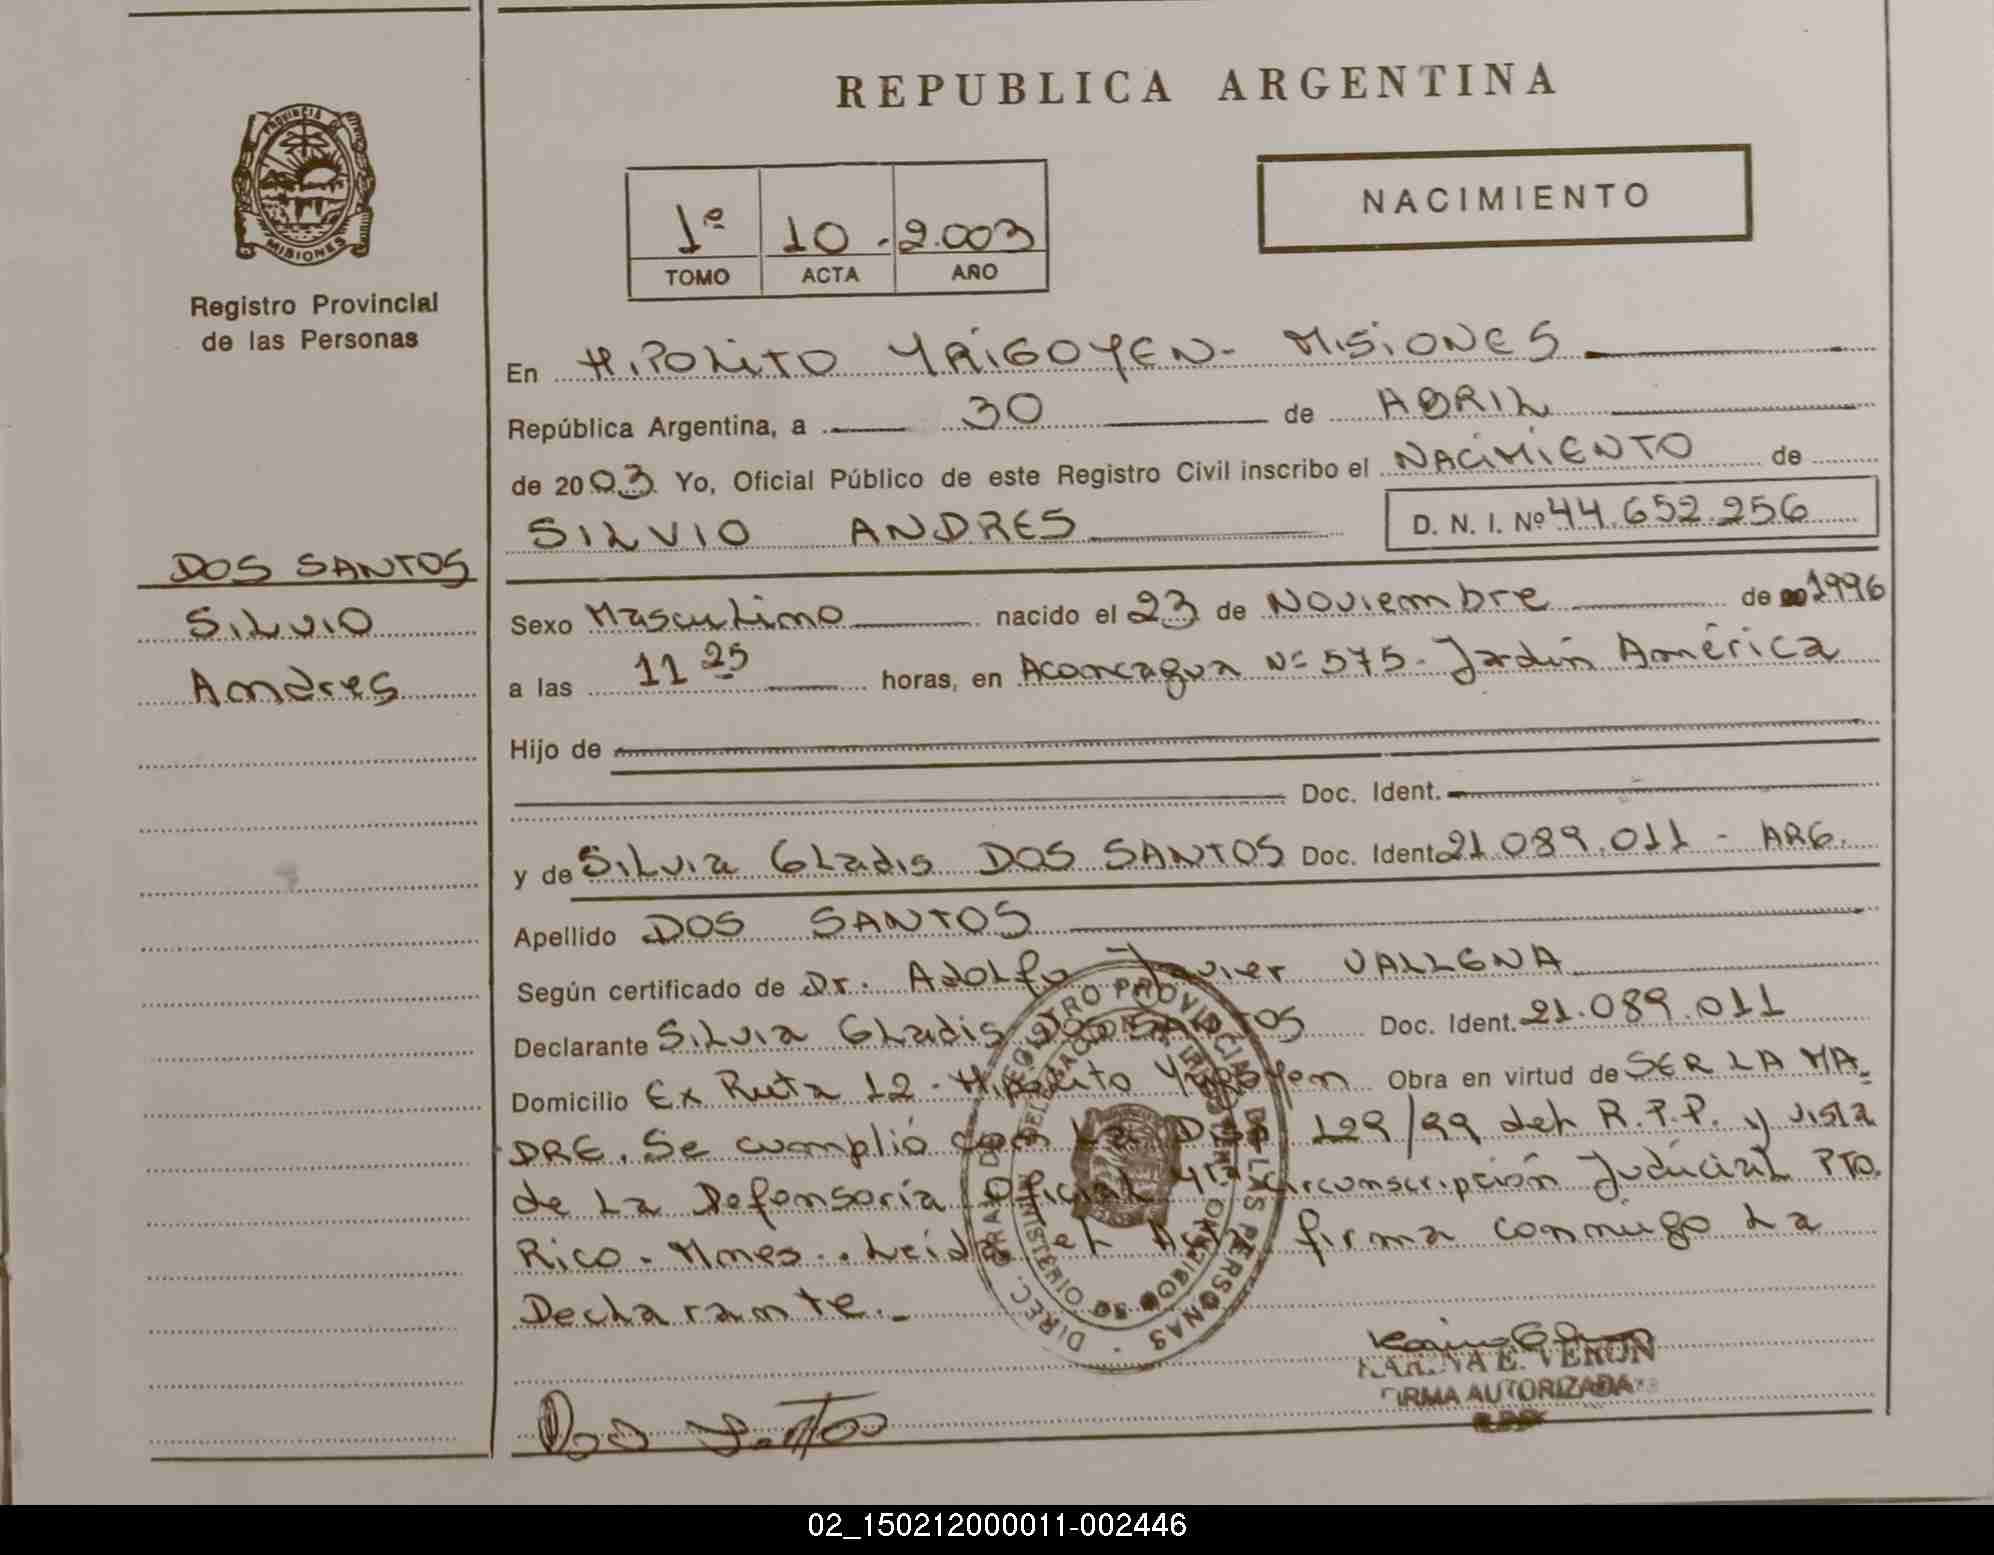 REPUBLICA ARGENTINA
PROVINCIA DE MISIONES
Registro Provincial
de las Personas
1º 10 - 2.003
TOMO ACTA AÑO
NACIMIENTO
En HIPOLITO YRIGOYEN - MISIONES
República Argentina, a 30 de ABRIL
de 2003 Yo, Oficial Público de este Registro Civil inscribo el NACIMIENTO de
SILVIO ANDRES D. N. I. Nº 44.652.256
DOS SANTOS
SILVIO
Andres
Sexo Masculino nacido el 23 de Noviembre de 1996
a las 11 25 horas, en Aconcagua Nº 575 - Jardín América
Hijo de
Doc. Ident.
y de Silvia Gladis DOS SANTOS Doc. Ident 21.089.011 - ARG.
Apellido DOS SANTOS
Según certificado de Dr. Adolfo Javier
Declarante Silvia Gladis DOS SANTOS Doc. Ident. 21.089.011
Domicilio Ex Ruta 12 - Hipolito Yrigoyen Obra en virtud de SER LA MA-
DRE. Se cumplió con La 129/99 del R.P.P. y vista
de La Defensoría Oficial 4ta Circunscripción Judicial PTO.
Rico - Mnes. Leída el Acta firma conmigo La
Declarante.-
DIREC. GRAL. DEL REGISTRO PROVINCIAL DE LAS PERSONAS
MINISTERIO DE GOBIERNO
Dos Santos
KARINA E. VERON
FIRMA AUTORIZADA
02_150212000011-002446